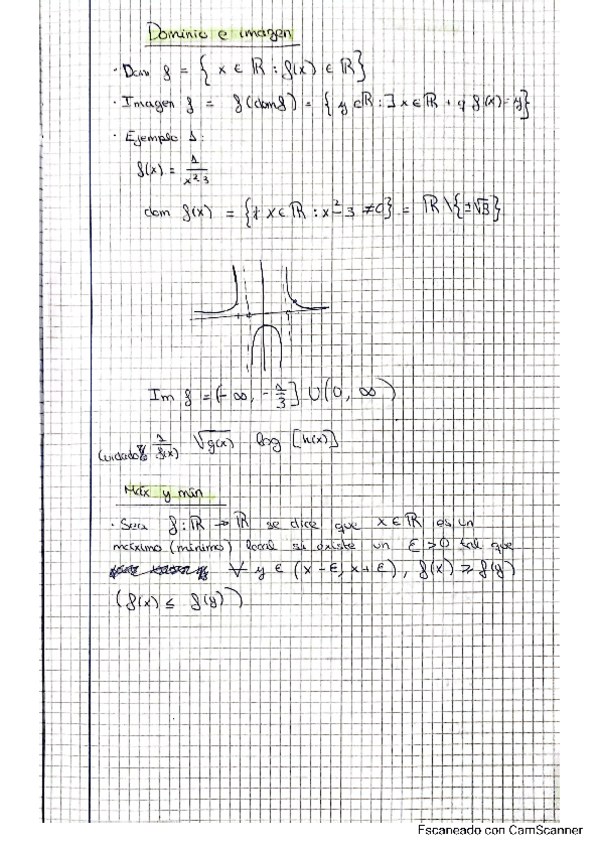 Dominio e imagen
· Dom f = { x ∈ ℝ : f(x) ∈ ℝ }
· Imagen f = f(dom f) = { y ∈ ℝ : ∃ x ∈ ℝ t q f(x) = y }
· Ejemplo 1:
f(x) = 1/(x²-3)
dom f(x) = { x ∈ ℝ : x² - 3 ≠ 0 } = ℝ \ { ±√3 }
Im f = (-∞, -1/3] ∪ (0, ∞)
Cuidado 1/f(x) √g(x) log [h(x)]
Máx y mín
· Sea f: ℝ → ℝ se dice que x ∈ ℝ es un
máximo (mínimo) local si existe un ε > 0 tal que
∀ y ∈ (x - ε, x + ε), f(x) ≥ f(y)
(f(x) ≤ f(y))
Escaneado con CamScanner